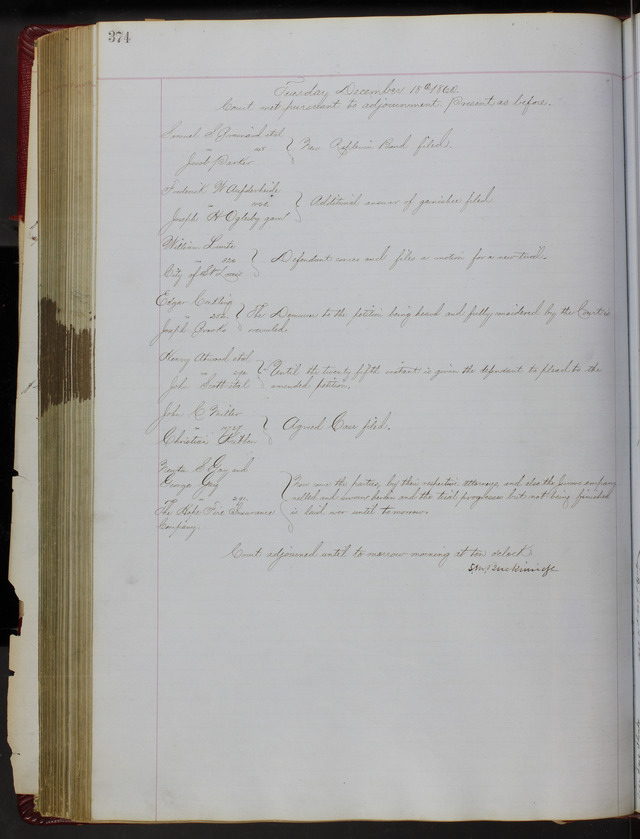 374
Tuesday December 18th 1860.
Court met pursuant to adjournment. Present as before.
Samuel S et al
vs
Jacob
New Bond filed.
Frederick W
vs
Joseph H Oglesby garnt
Additional answer of garnishee filed.
William
vs
City of St Louis
Defendant comes and files a motion for a new trial.
Edgar
vs
Joseph
The Demurrer to the petition being heard and fully considered by the Court is
overruled.
Henry et al
vs
John Scott et al
Until the twenty fifth instant is given the defendant to plead to the
amended petition.
John C Miller
vs
Christian
Agreed Case filed.
S Gay and
George Gay
vs
The Hope Fire Insurance
Company.
Now come the parties, by their respective attorneys, and also the Jurors empan
nelled and sworn herein and the trial progresses but not being finished
is laid over until to morrow.
Court adjourned until to morrow morning at ten oclock.